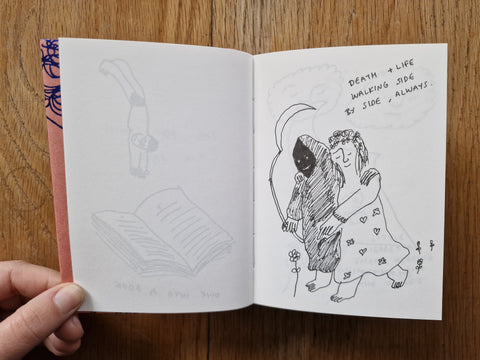 DEATH + LIFE
WALKING SIDE
BY SIDE, ALWAYS.